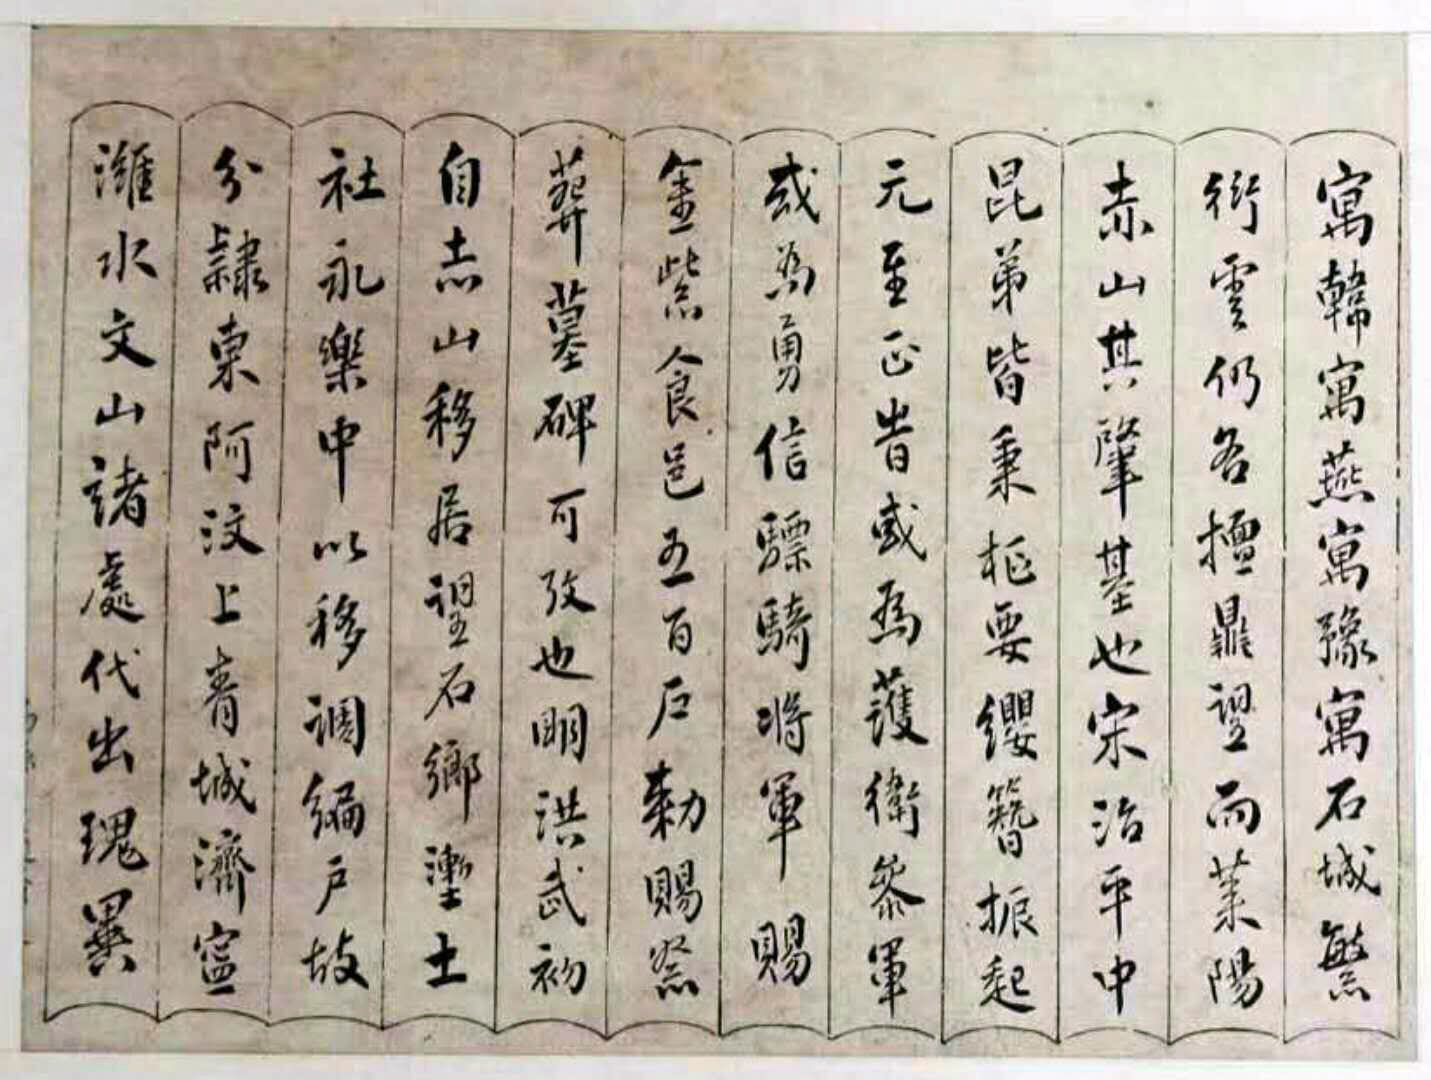 寓韓寓燕寓豫寓石城繁
衍雲仍各擅鼎望而萊陽
赤山其肇基也宋治平中
昆弟皆秉枢要纓簪振起
元至正昔或為護衛参軍
或為勇信驃騎將軍賜
金紫食邑五百戶勅賜祭
葬墓碑可攷也明洪武初
自赤山移居望石鄉灅土
社永樂中以移調編戶故
分隸東阿汶上青城濟寍
濰水文山諸處代出瑰異